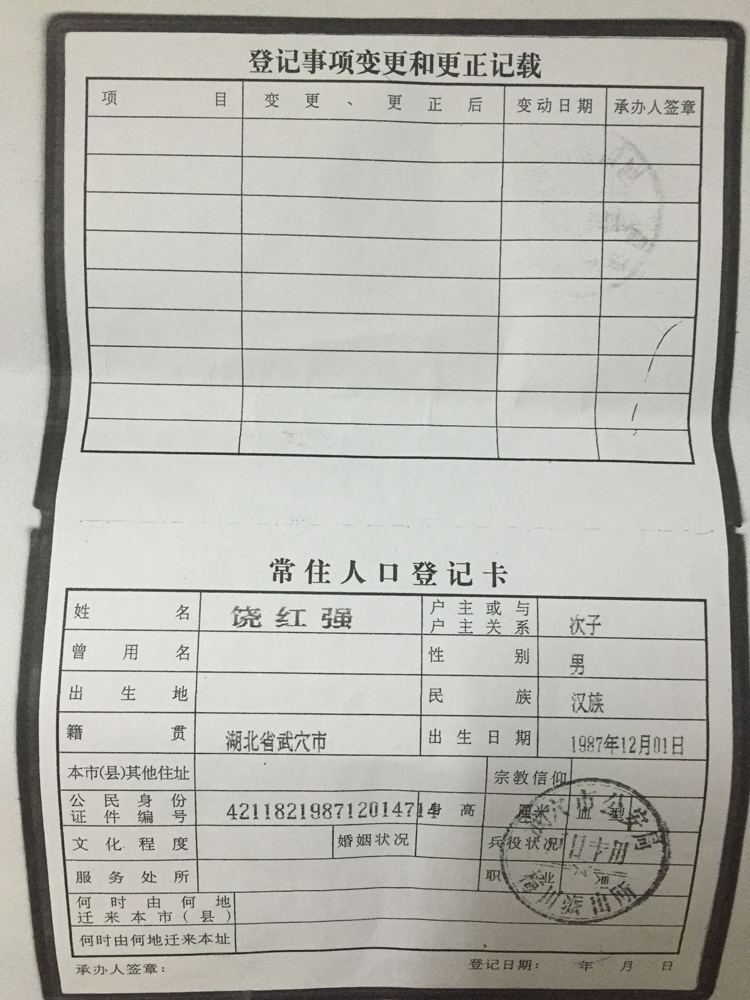 登记事项变更和更正记载
项目 变更、更正后 变动日期 承办人签章
常住人口登记卡
姓名 饶红强 户主或与户主关系 次子
曾用名 性别 男
出生地 民族 汉族
籍贯 湖北省武穴市 出生日期 1987年12月01日
本市(县)其他住址 宗教信仰
公民身份证件编号 421182198712014714 身高 厘米 血型
文化程度 婚姻状况 兵役状况
服务处所 职业
何时由何地迁来本市(县)
何时由何地迁来本址
承办人签章： 登记日期： 年 月 日
武穴市公安局
派出所